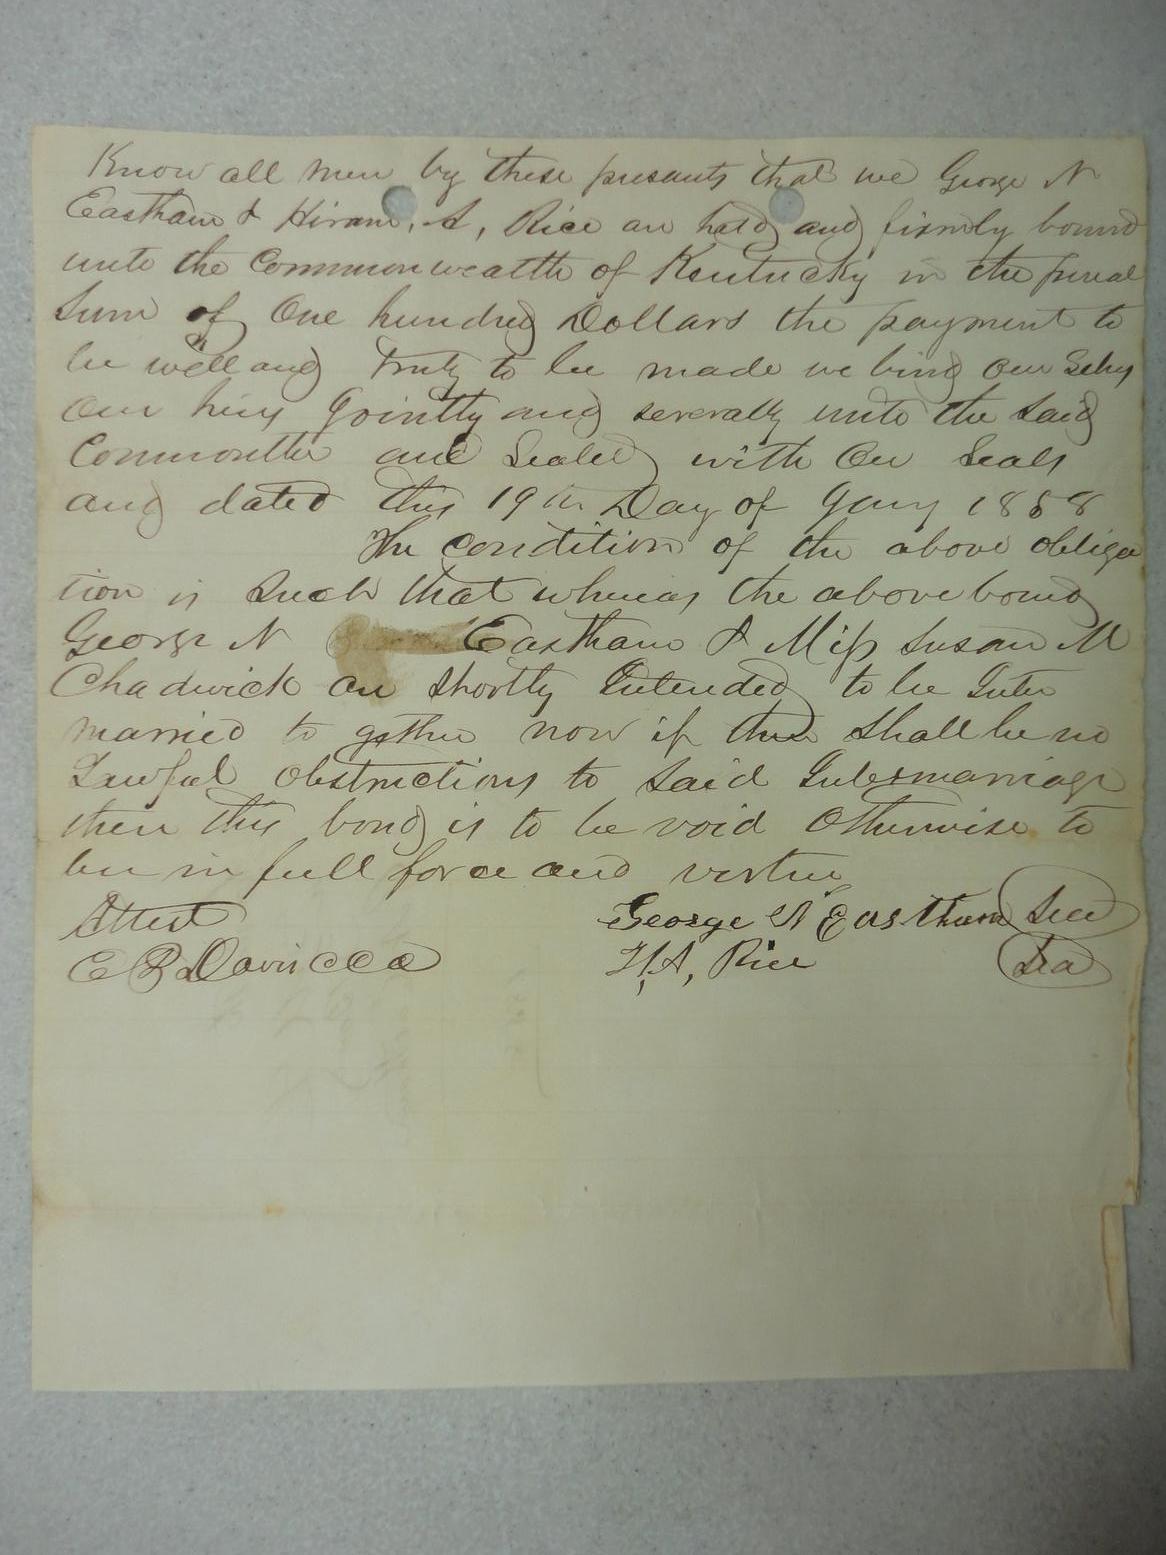 Know all men by these presants that we George N
Eastham & Hiram. A, Rice are held and firmly bound
unto the Commonwealth of Kentucky in the penal
Sum of One hundred Dollars the payment to
be well and truly to be made we bind our Selvs
our heirs Jointly and severally unto the Said
Commonlth and Sealed with Our Seals
and dated this 19th Day of Jany 1858
The condition of the above obliga
tion is Such that whereas the above bound
George N Eastham & Miss Susan M
Chadwick are Shortly Intended to be Inter
married to gether now if there Shall be no
Lawful obstructions to Said Intermarriage
then this bond is to be void Otherwise to
be in full force and virtue
Attest George N Eastham Seal
E B Davis H.A, Rice Seal